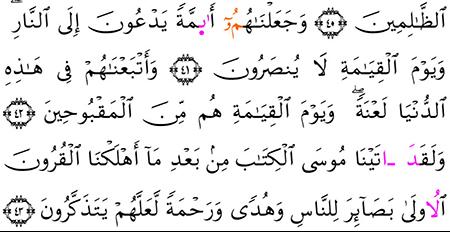 ٱلظَّـٰلِمِينَ ۝٤٠ وَجَعَلْنَـٰهُمُۥٓ أَىِٕمَّةً يَدْعُونَ إِلَى ٱلنَّارِۖ
وَيَوْمَ ٱلْقِيَـٰمَةِ لَا يُنصَرُونَ ۝٤١ وَأَتْبَعْنَـٰهُمْ فِى هَـٰذِهِ
ٱلدُّنْيَا لَعْنَةًۖ وَيَوْمَ ٱلْقِيَـٰمَةِ هُم مِّنَ ٱلْمَقْبُوحِينَ ۝٤٢
وَلَقَدَ ـاتَيْنَا مُوسَى ٱلْكِتَـٰبَ مِنۢ بَعْدِ مَآ أَهْلَكْنَا ٱلْقُرُونَ
ٱلُاولَىٰ بَصَآئِرَ لِلنَّاسِ وَهُدًى وَرَحْمَةً لَّعَلَّهُمْ يَتَذَكَّرُونَ ۝٤٣